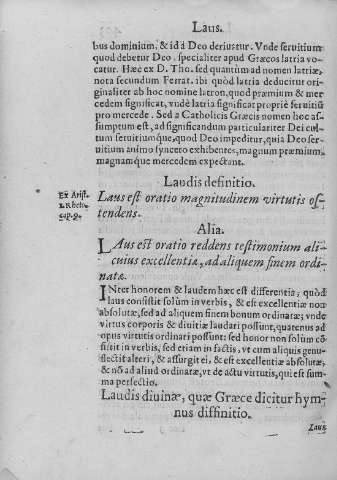 Laus.
bus dominium, & id à Deo deriuetur. Vnde seruitium
quod debetur Deo, specialiter apud Græcos latria vo-
catur. Hæc ex D. Tho. sed quantum ad nomen latriæ,
nota secundum Ferrat. ibi quòd latria deducitur ori-
ginaliter ab hoc nomine latron, quod præmium & mer
cedem significat, vndè latria significat propriè seruitiũ
pro mercede. Sed a Catholicis Græcis nomen hoc as-
sumptum est, ad significandum particulariter Dei cul-
tum seruitiumque, quod Deo impeditur, quia Deo ser-
uitium animo syncero exhibentes, magnum præmium,
magnamque mercedem expectant.
Laudis definitio.
Ex Arist.
1. Rheto.
cap. 9.
Laus est oratio magnitudinem virtutis os-
tendens.
Alia.
LAus est oratio reddens testimonium ali-
cuius excellentiæ, ad aliquem finem ordi-
natæ.
INter honorem & laudem hæc est differentia, quòd
laus consistit solùm in verbis, & est excellentiæ non
absolutæ, sed ad aliquem finem bonum ordinatæ; vnde
virtus corporis & diuitiæ laudari possunt, quatenus ad
opus virtutis ordinari possunt: sed honor non solùm cõ
sistit in verbis, sed etiam in factis, vt cum aliquis genu-
flectit alteri, & assurgit ei, & est excellentiæ absolutæ,
& nõ ad aliud ordinatæ, vt de actu virtutis, qui est sum
ma perfectio.
Laudis diuinæ, quæ Græce dicitur hym-
nus diffinitio.
Laus